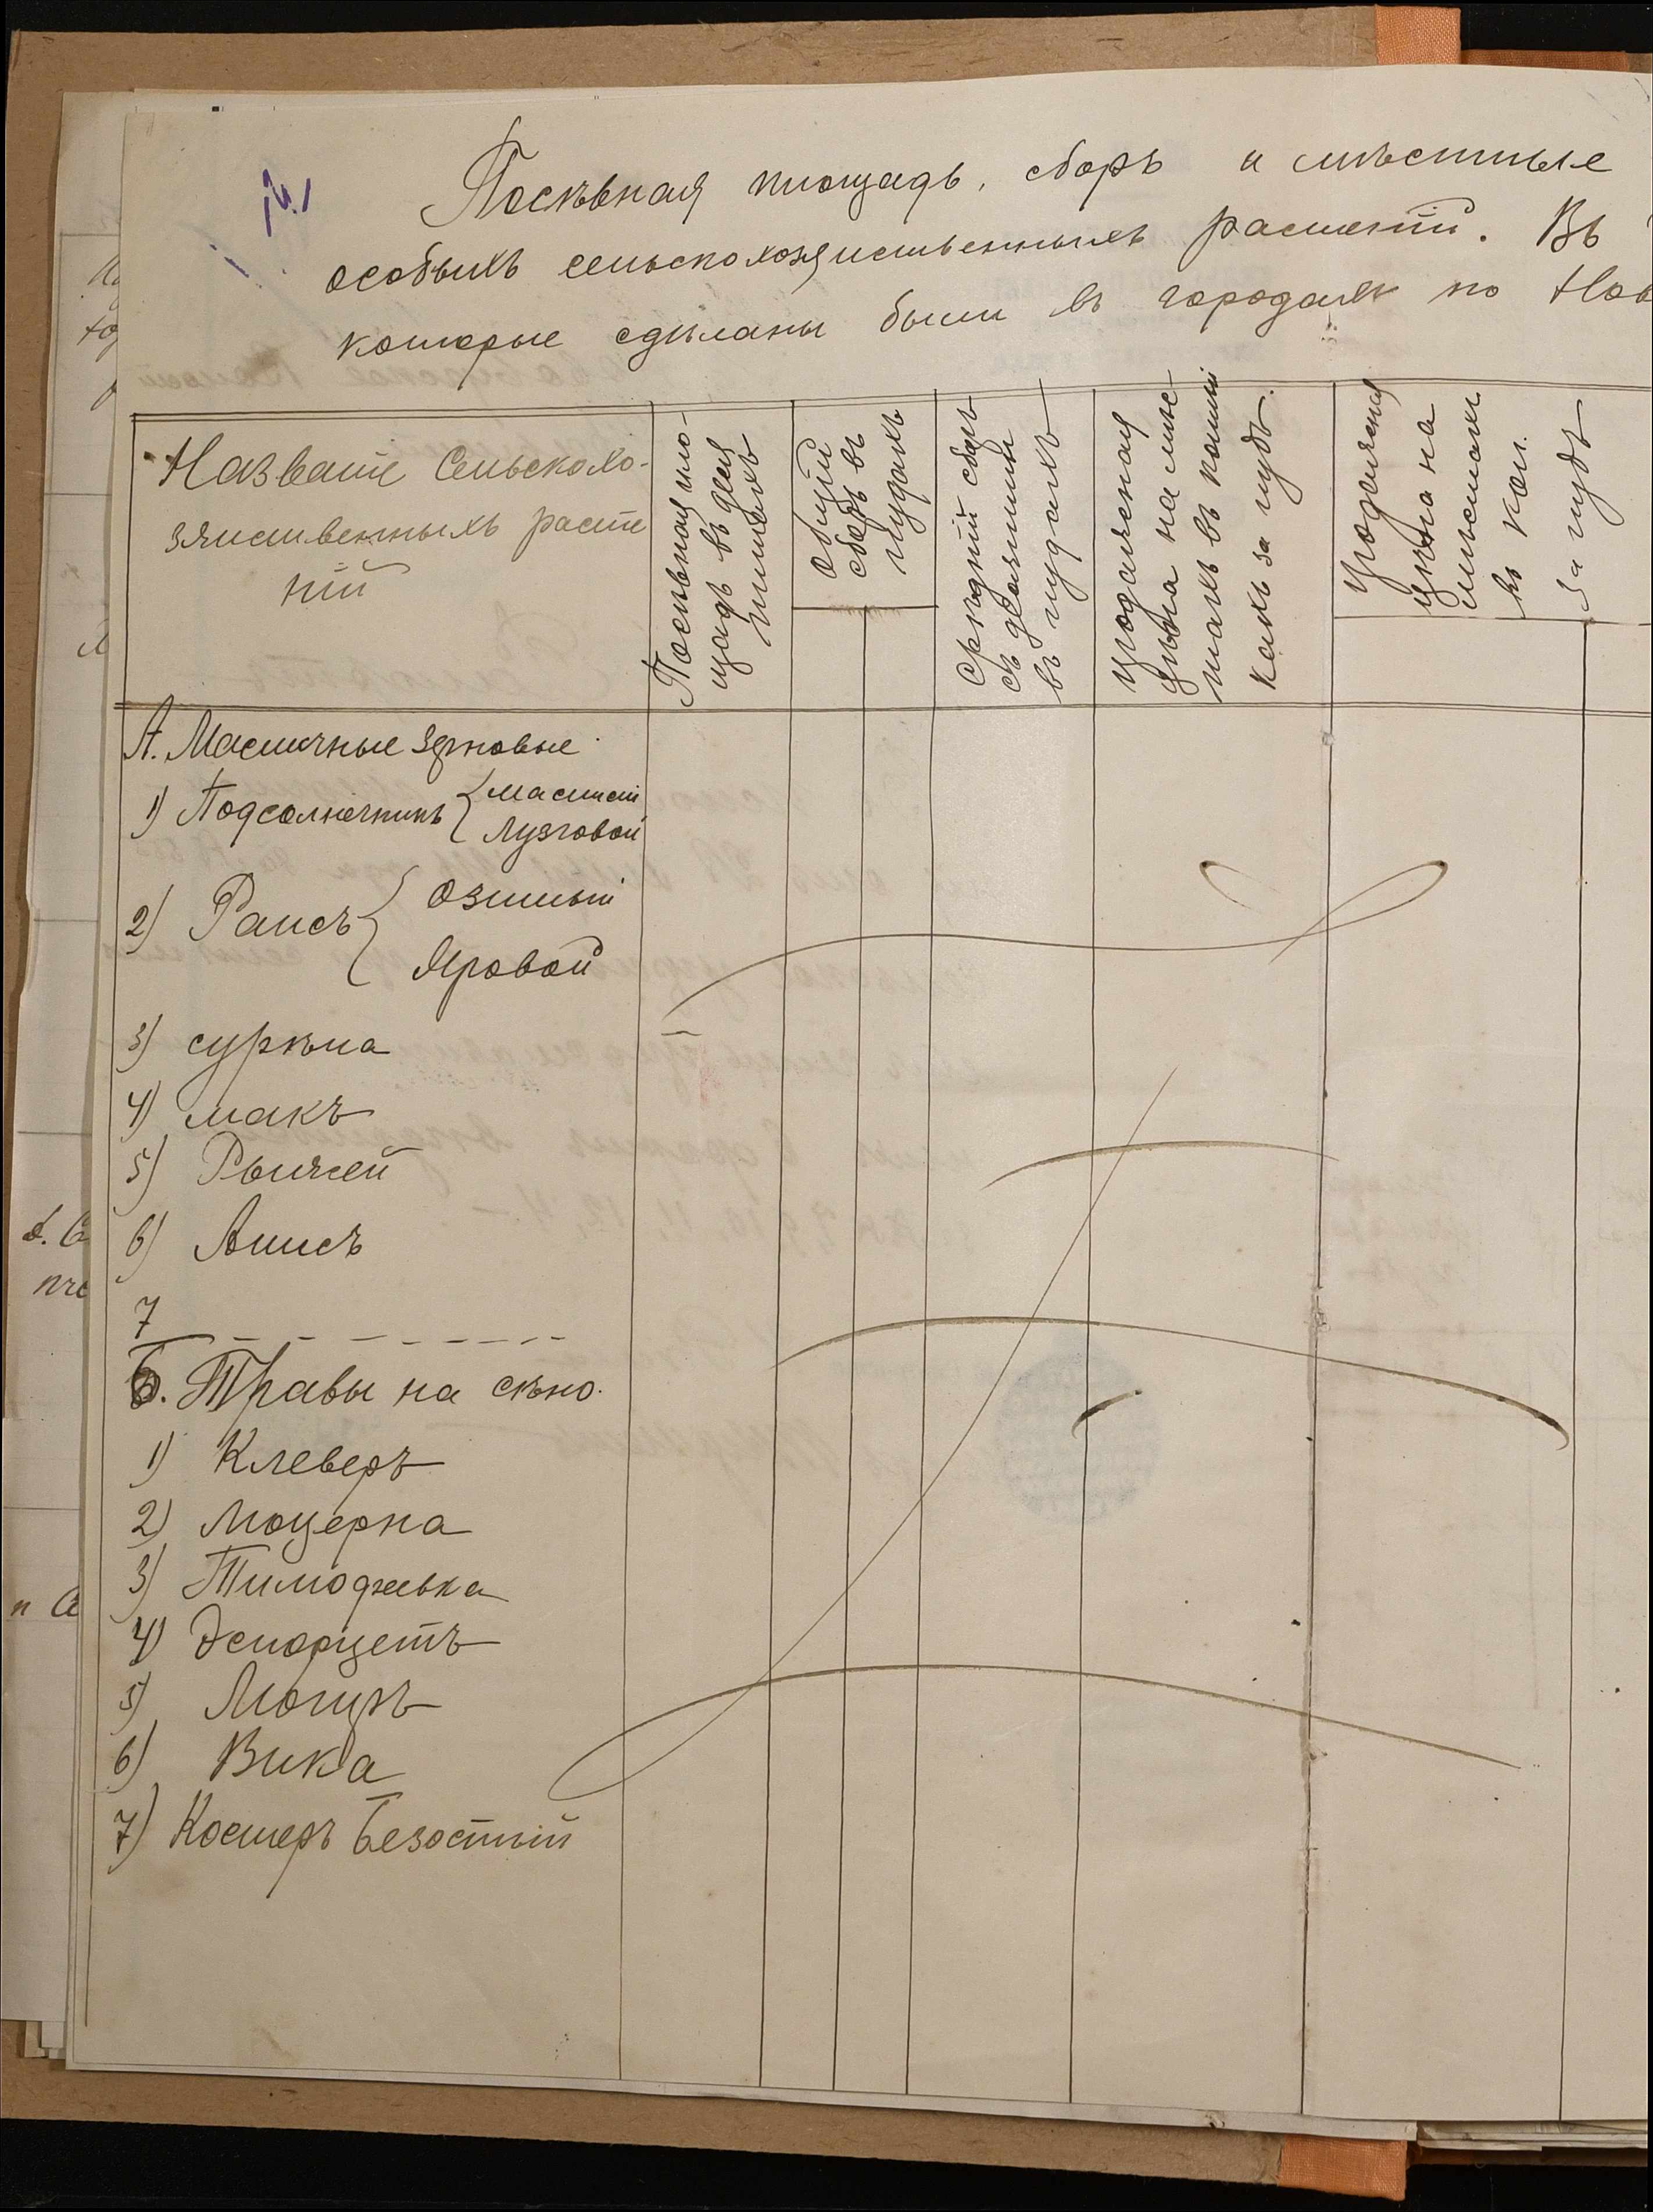 Посѣвная площадь, сборъ и мѣстные
особыхъ сельскохозяиственныхъ растенiй. Въ
которые сдѣланы были въ городахъ по Нов
Названiе Сельскохо-
зяиственныхъ расте
нiй
Посѣвная пло-
щадь въ деся
тинахъ
Общiй
сборъ въ
пудахъ
Среднiй сборъ
съ десятины
въ пудахъ
продажная
цѣна на мѣс-
тахъ въ копей
кахъ за пудъ.
продажная
цѣна на
мѣстахъ
въ коп.
за пудъ
А. Масличные зерновые
1) Подсолнечникъ { масличный
Лузговой
2) Рапсъ { Озимый
Яровой
3) сурѣпа
4) макъ
5) Рыжей
6) Анисъ
7
Б. Травы на сѣно.
1) Клеверъ
2) Люцерна
3) Тимофеевка
4) Эспарцетъ
5) Могаръ
6) Вика
7) Костеръ безостый